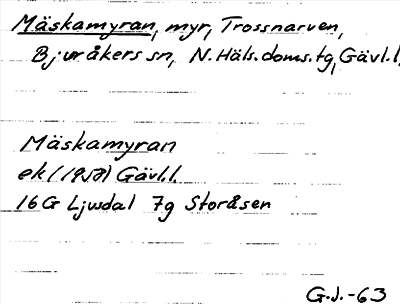 Mäskamyran, myr, Trossnarven,
Bjuråkers sn, N. Häls. doms. tg, Gävl. l.
Mäskamyran
ek (1958) Gävl. l.
16 G Ljusdal 7g Storåsen
G.J.-63